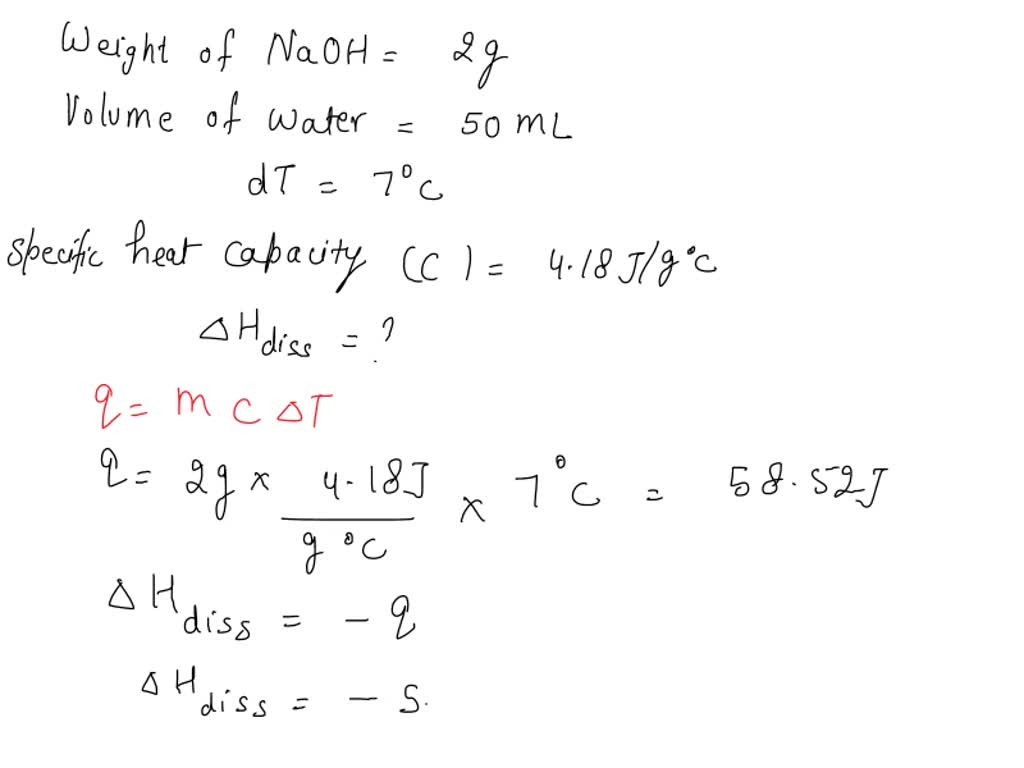 Weight of NaOH = 2g
Volume of water = 50 mL
dT = 7°C
Specific heat capacity (C) = 4.18 J/g°C
ΔHdiss = ?
q = m C ΔT
q = 2g x 4.18J / g °C x 7°C = 58.52J
ΔHdiss = - q
ΔHdiss = - 5.